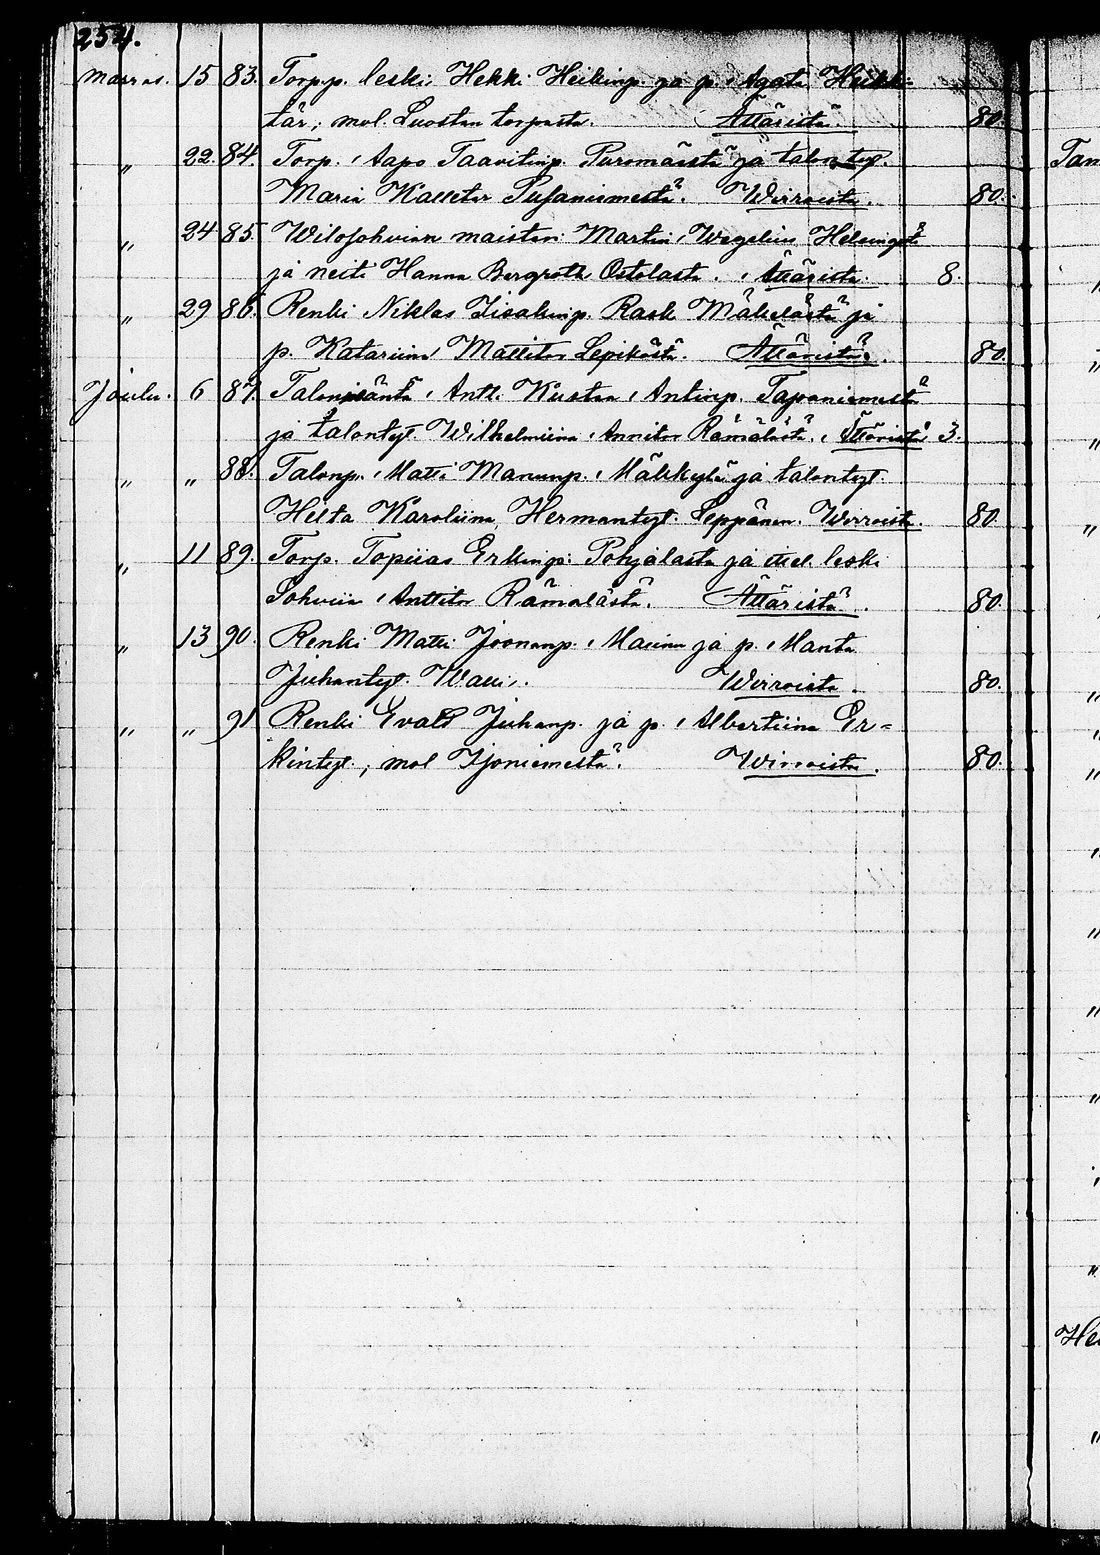 254.
Marras. 15 83. Torpp. leski Heikki Heikinp. ja p. Agata Heikki-
tär, mol. Luostan torpasta. Ättäristä. 80.
„ 22. 84. Torp. Aapo Taavitinp. Puromäestä ja talontyt.
Maria Kalletar Pusaniemestä. Wirroista. 80.
„ 24 85. Wilosohvian maisteri Martin Wegelius Helsingistä
ja neiti Hanna Bergroth Ostolasta. Ättäristä. 8.
„ 29 86. Renki Niklas Iisakinp. Rask Mäkelästä ja
p. Katariina Mattitar Lepiköstä. Ättäristä. 80.
Joulu. 6 87. Talonisäntä Antt. Kustaa Antinp. Tapaniemestä
ja talontyt. Wilhelmiina Annitar Rämälästä. Ättäristä 3.
„ „ 88. Talonp. Matti Manunp. Mäkikylä ja talontyt.
Hilta Karoliina Hermantyt. Leppänen. Wirroista. 80.
„ 11 89. Torp. Topiias Erkinp. Pohjalasta ja itsel. leski
Sohviia Anttitar Rämälästä. Ättäristä. 80.
„ 13 90. Renki Matti Joonanp. Mauinu ja p. Manta
Juhantyt. Wirroista. 80.
„ „ 91 Renki Evald Juhanp. ja p. Albertiina Er-
kintyt., mol Tjoniemestä. Wirroista. 80.